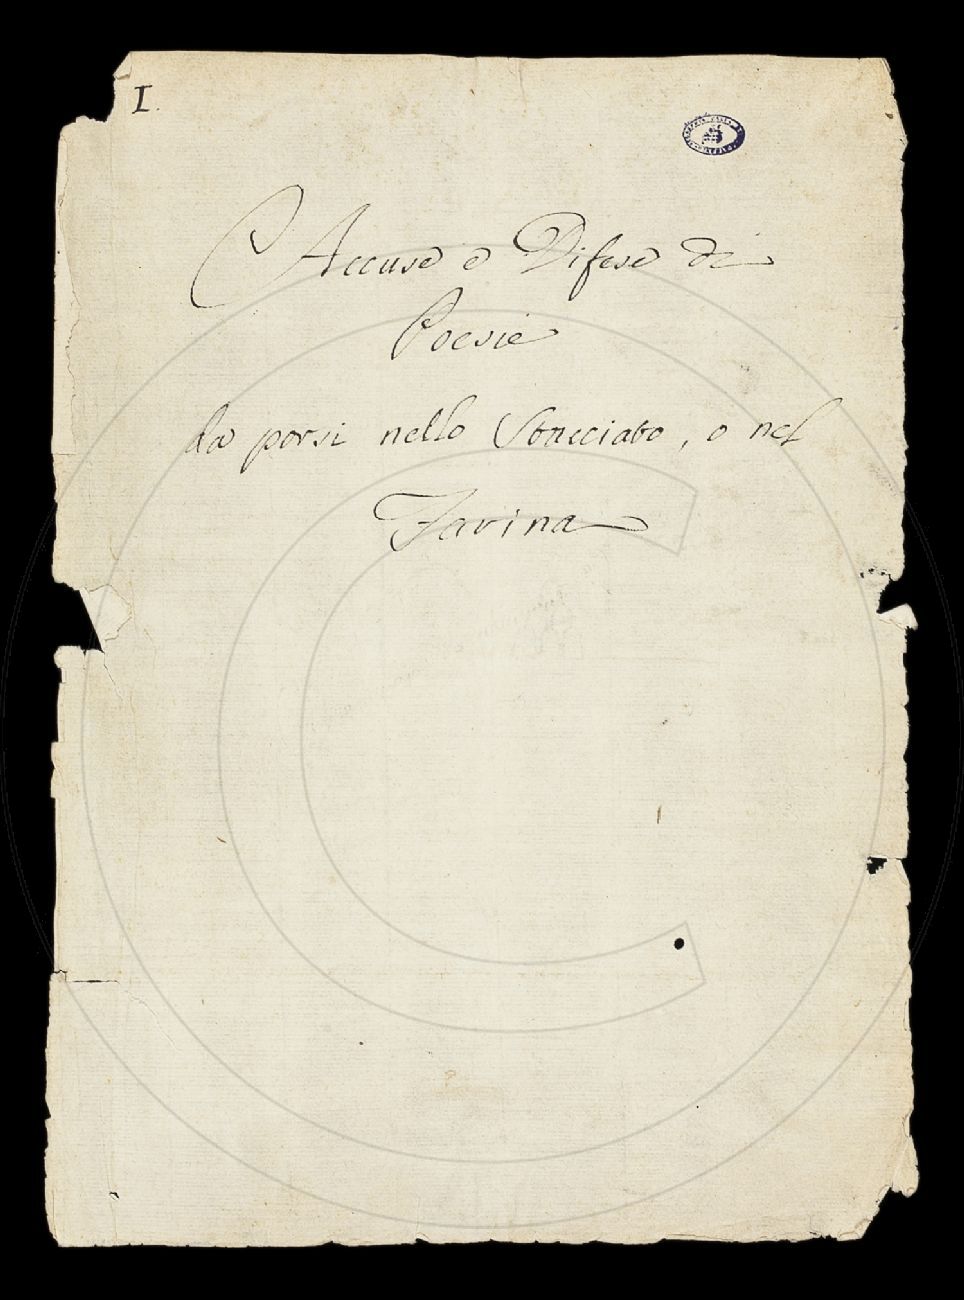 I.
Accuse e Difese di
Poesie
da porsi nello Stacciato, o nel
Farina